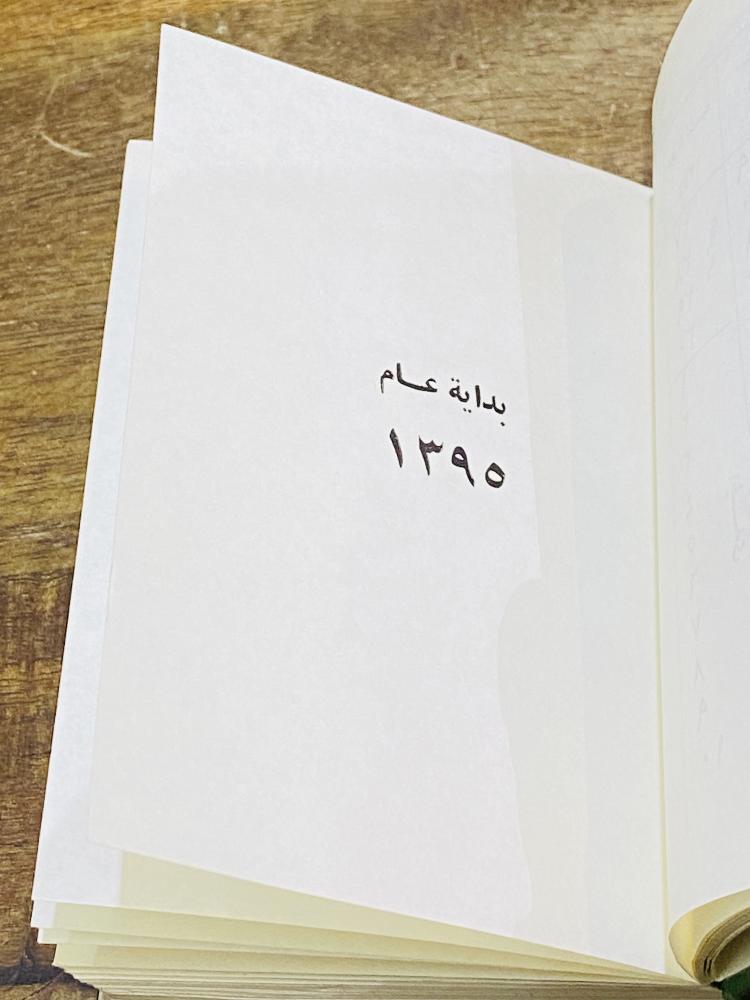 بداية عام
١٣٩٥